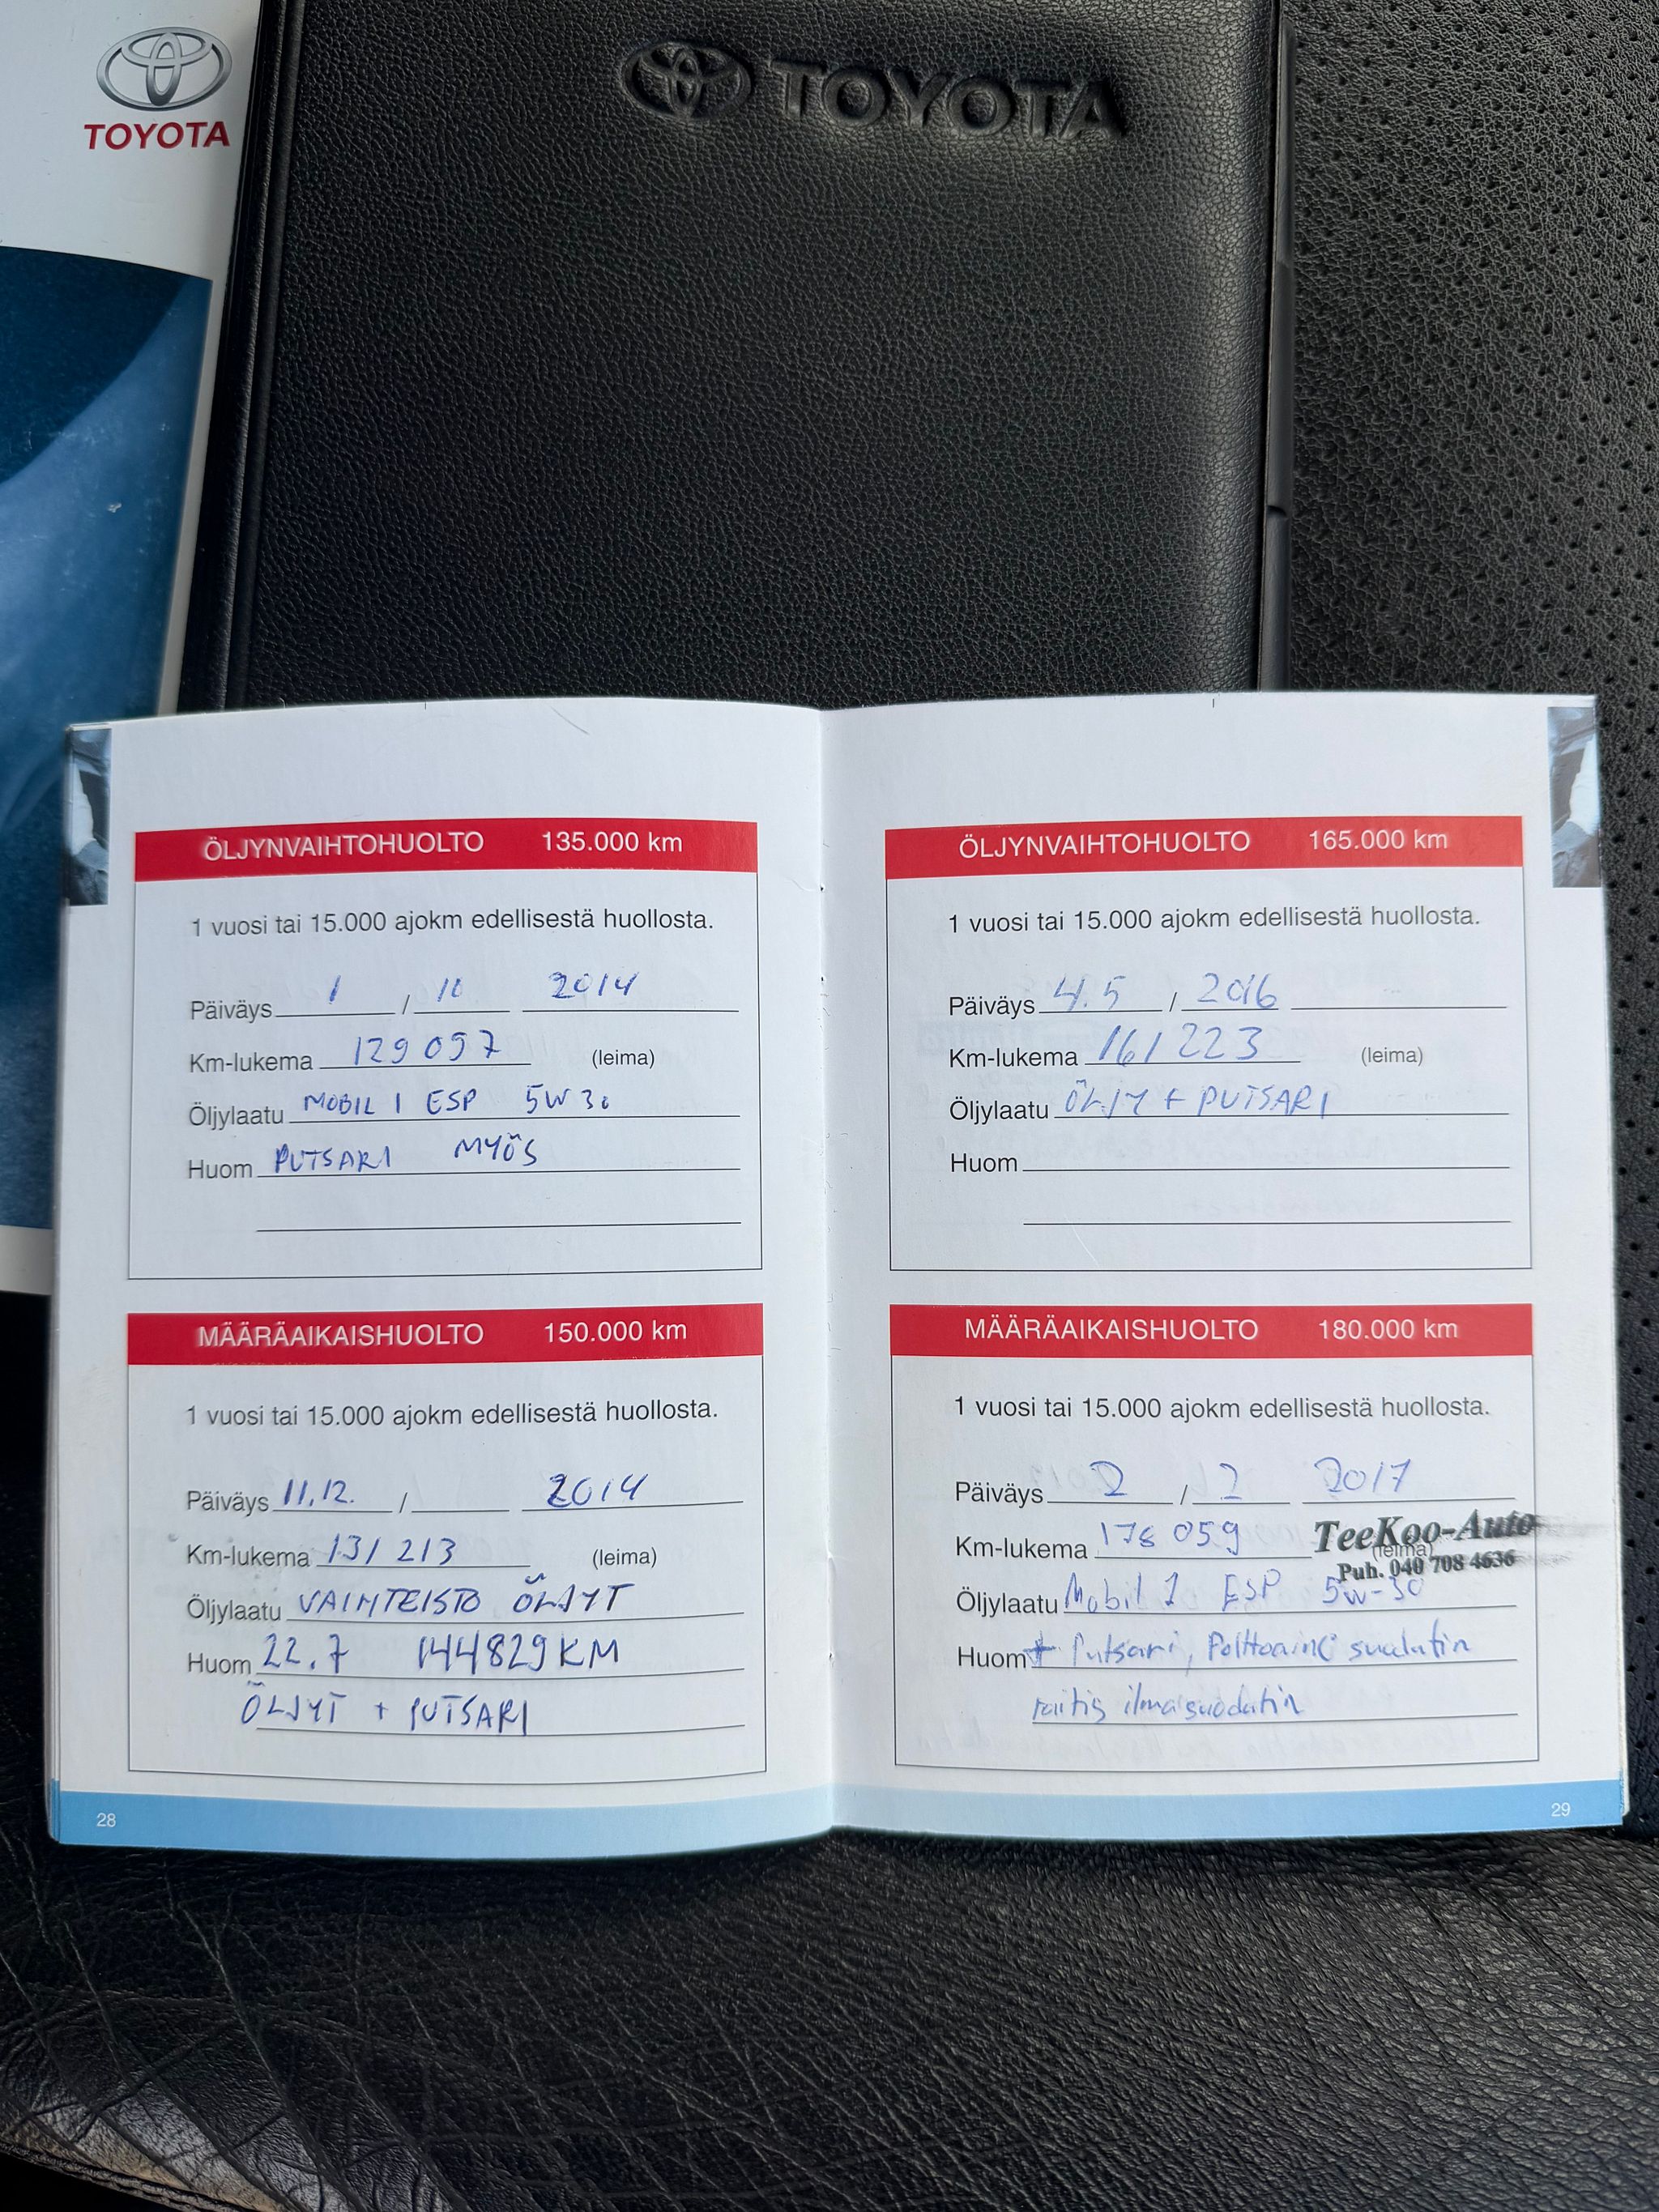 TOYOTA
TOYOTA
ÖLJYNVAIHTOHUOLTO 135.000 km
1 vuosi tai 15.000 ajokm edellisestä huollosta.
Päiväys 1 / 10 2014
Km-lukema 129 097 (leima)
Öljylaatu MOBIL 1 ESP 5W30
Huom PUTSARI MYÖS
MÄÄRÄAIKAISHUOLTO 150.000 km
1 vuosi tai 15.000 ajokm edellisestä huollosta.
Päiväys 11.12. / 2014
Km-lukema 131 213 (leima)
Öljylaatu VAIHTEISTO ÖLJYT
Huom 22.7 144829 KM
ÖLJYT + PUTSARI
28
ÖLJYNVAIHTOHUOLTO 165.000 km
1 vuosi tai 15.000 ajokm edellisestä huollosta.
Päiväys 4.5 / 2016
Km-lukema 161 223 (leima)
Öljylaatu ÖLJY + PUTSARI
Huom
MÄÄRÄAIKAISHUOLTO 180.000 km
1 vuosi tai 15.000 ajokm edellisestä huollosta.
Päiväys 2 / 2 2017
Km-lukema 178 059 (leima)
TeeKoo-Auto
Puh. 040 708 4636
Öljylaatu Mobil 1 ESP 5w-30
Huom + Putsari, Polttoaine suodatin
raitis ilmasuodatin
29